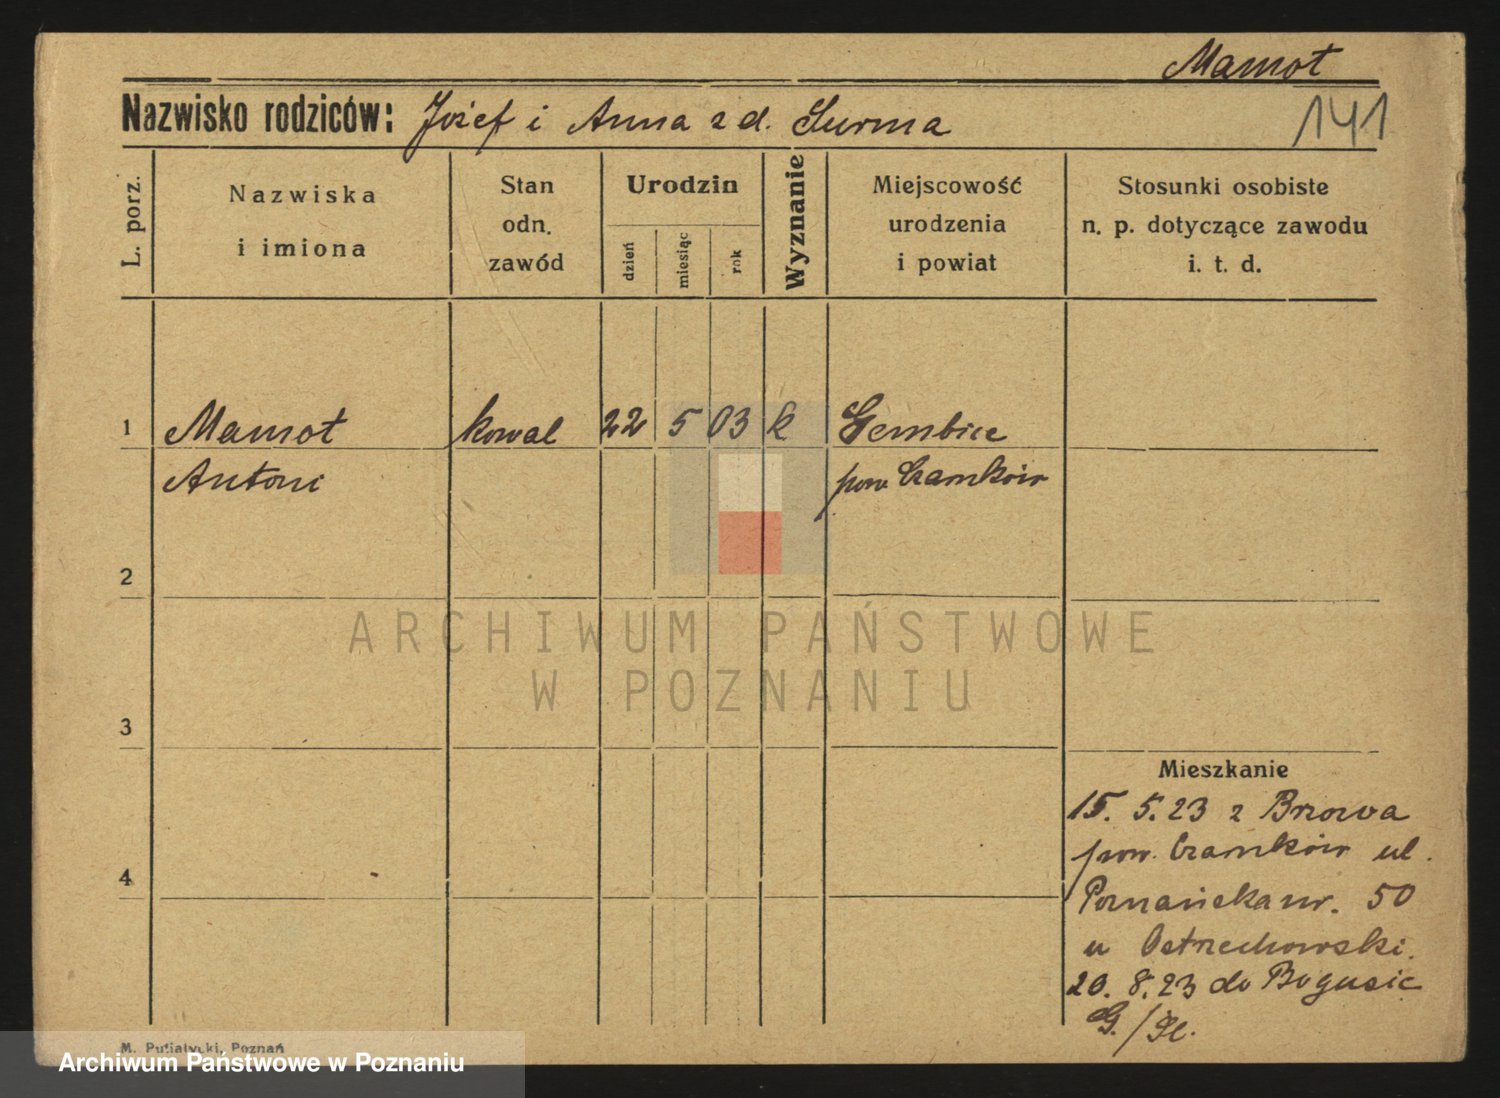 Mamot
Nazwisko rodziców: Józef i Anna z d. Surma
141
L. porz.
Nazwiska
i imiona
Stan
odn.
zawód
Urodzin
dzień
miesiąc
rok
Wyznanie
Miejscowość
urodzenia
i powiat
Stosunki osobiste
n. p. dotyczące zawodu
i. t. d.
1 Mamot kowal 22 5 03 k Gembice
Antoni pow Czarnków
2
3
4
Mieszkanie
15. 5.23 z Brzowa
pow. Czarnków ul.
Poznańska nr. 50
u Ostrzechowski.
20. 8.23 do Bogusic
G./Śl.
M. Putiatycki, Poznań
ARCHIWUM PAŃSTWOWE
W POZNANIU
Archiwum Państwowe w Poznaniu